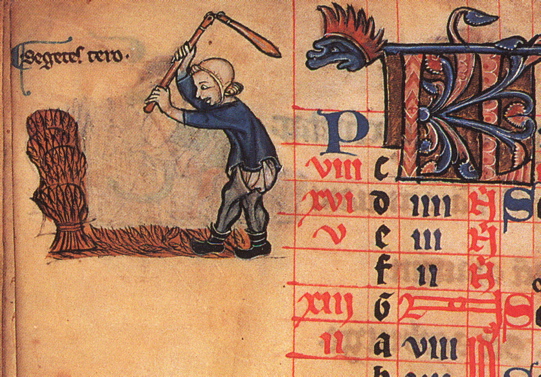 Segetes tero.
K
P
viii c
xvi d iiii
v e iii
f ii
xiii G
ii a viii